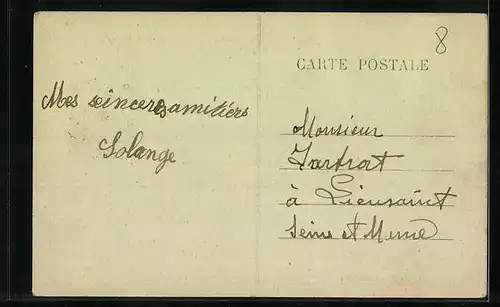 8
CARTE POSTALE
Mes seinceresamitiers
Solange
Monsieur
à Lieusaint
Seine et Marne